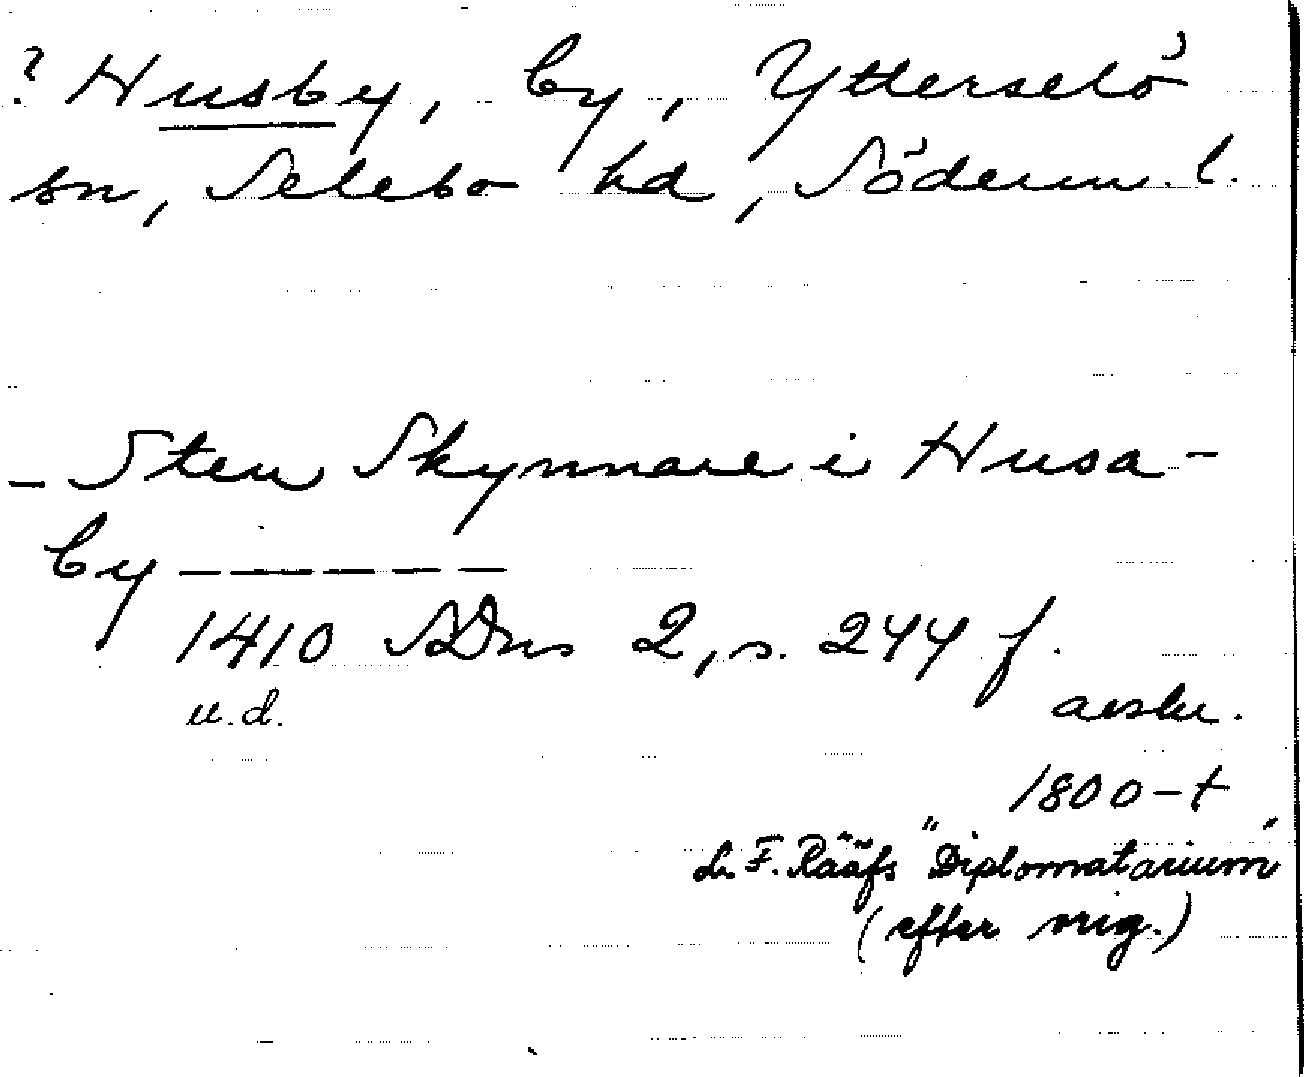 ? Husby, by, Ytterselö
sn, Selebo hd, Söderm. l.
- Sten Skynnare i Husa-
by - - - - -
1410 SDns 2, s. 244 f.
u.d. avskr.
1800-t
L. F. Rääfs "Diplomatarium"
(efter orig.)